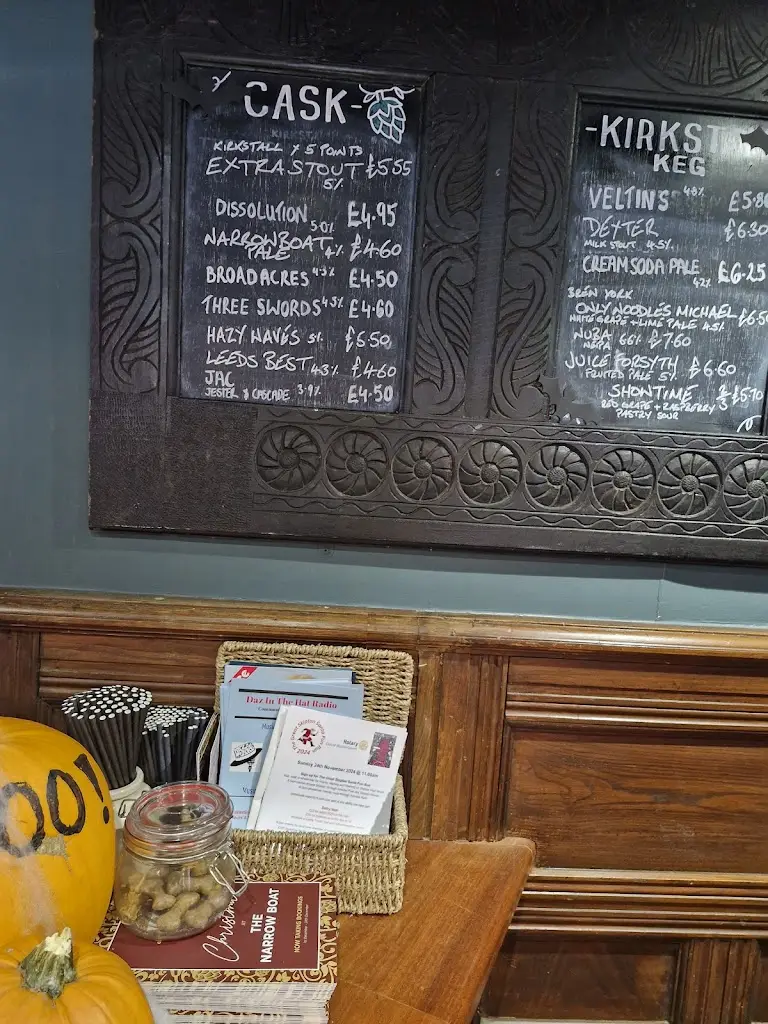 CASK-
KIRKSTALL X 5 POINTS
EXTRA STOUT £5.55
5%
DISSOLUTION 5.0% £4.95
NARROWBOAT PALE 4% £4.60
BROADACRES 4.3% £4.50
THREE SWORDS 4.5% £4.60
HAZY WAVES 5% £5.50
LEEDS BEST 4.3% £4.60
JAC
JESTER & CASCADE 3.9% £4.50
-KIRKST
KEG
VELTINS 4.8% £5.80
DEXTER £6.30
MILK STOUT 4.5%
CREAM SODA PALE £6.25
4.2%
BREW YORK
ONLY NOODLES MICHAEL £6.50
WHITE GRAPE + LIME PALE 4.5%
NUBA 6.6% £7.60
NEPA
JUICE FORSYTH £6.60
FRUITED PALE 5%
SHOWTIME £5.70
RED GRAPE + RASPBERRY
PASTRY SOUR
Daz In The Hat Radio
The Great Skipton Santa Fun Run
2024
Rotary
Sunday 24th November 2024 @ 11.00am
OO!
Christmas
AT
THE
NARROW BOAT
NOW TAKING BOOKINGS